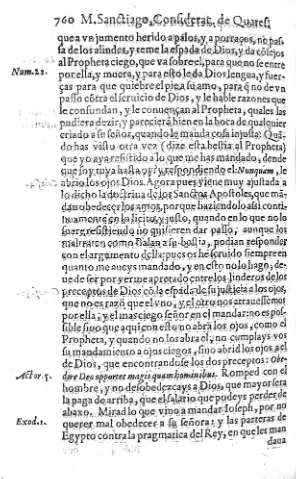 760 M. Sanctiago, Considerac. de Quares.
que a vn jumento herido a palos, y a porraços, no pas
sa de los alindes, y teme la espada de Dios, y da cõsejos
al Propheta ciego, que va sobre el, para que no se entre
Num. 22. por ella, y muera, y para esto le da Dios lengua, y fuer-
ças para que quiebre el pie a su amo, para q̃ no de vn
passo cõtra el seruicio de Dios, y le hable razones que
le confundan, y le conuençan al Propheta, quales las
pudiera dezir, y pareciera bien en la boca de qualquier
criado a se señor, quando le manda cosa injusta: Quã
do has visto otra vez (dize esta bestia al Propheta)
que yo aya resistido a lo que me has mandado, dende
que soy tuya hasta oy? y respondiendo el: Nunquam, le
abrio los ojos Dios. Agora pues viene muy ajustada a
lo dicho la doctrina de los Sanctos Apostoles, que mã
dan obedecer los amos, porque haziendolo assi conti-
nuamente en lo licito, y justo, quando en lo que no lo
fuere resistiendo no quisieren dar passo, aunque los
maltraten como Balan a su bestia, podian responder
con el argumento della: pues os he seruido siempre en
quanto me aueys mandado, y en esto no lo hago, de-
ue de ser por verme apretado entre los linderos de los
preceptos de Dios cõ la espada de su justicia a los ojos,
que no es razõ que el vno, y el otro nos atrauessemos
por ella, y el mas ciego señor en el mandar: no es pos-
sible sino que aqui con esto no abra los ojos, como el
Propheta, y quando no los abra el, no cumplays vos
su mandamiento a ojos ciegos, sino abrid los ojos al
de Dios, que encontrandose los dos preceptos: Obe-
Actor. 5. dire Deo oportet magis quam hominibus. Romped con el
hombre, y no desobedezcays a Dios, que mayor sera
la paga de arriba, que el salario que podeys perder de
abaxo. Mirad lo que vino a mandar Ioseph, por no
Exod. 1. querer mal obedecer a su señora: y las parteras de
Egypto contra la pragmatica del Rey, en que les man
daua